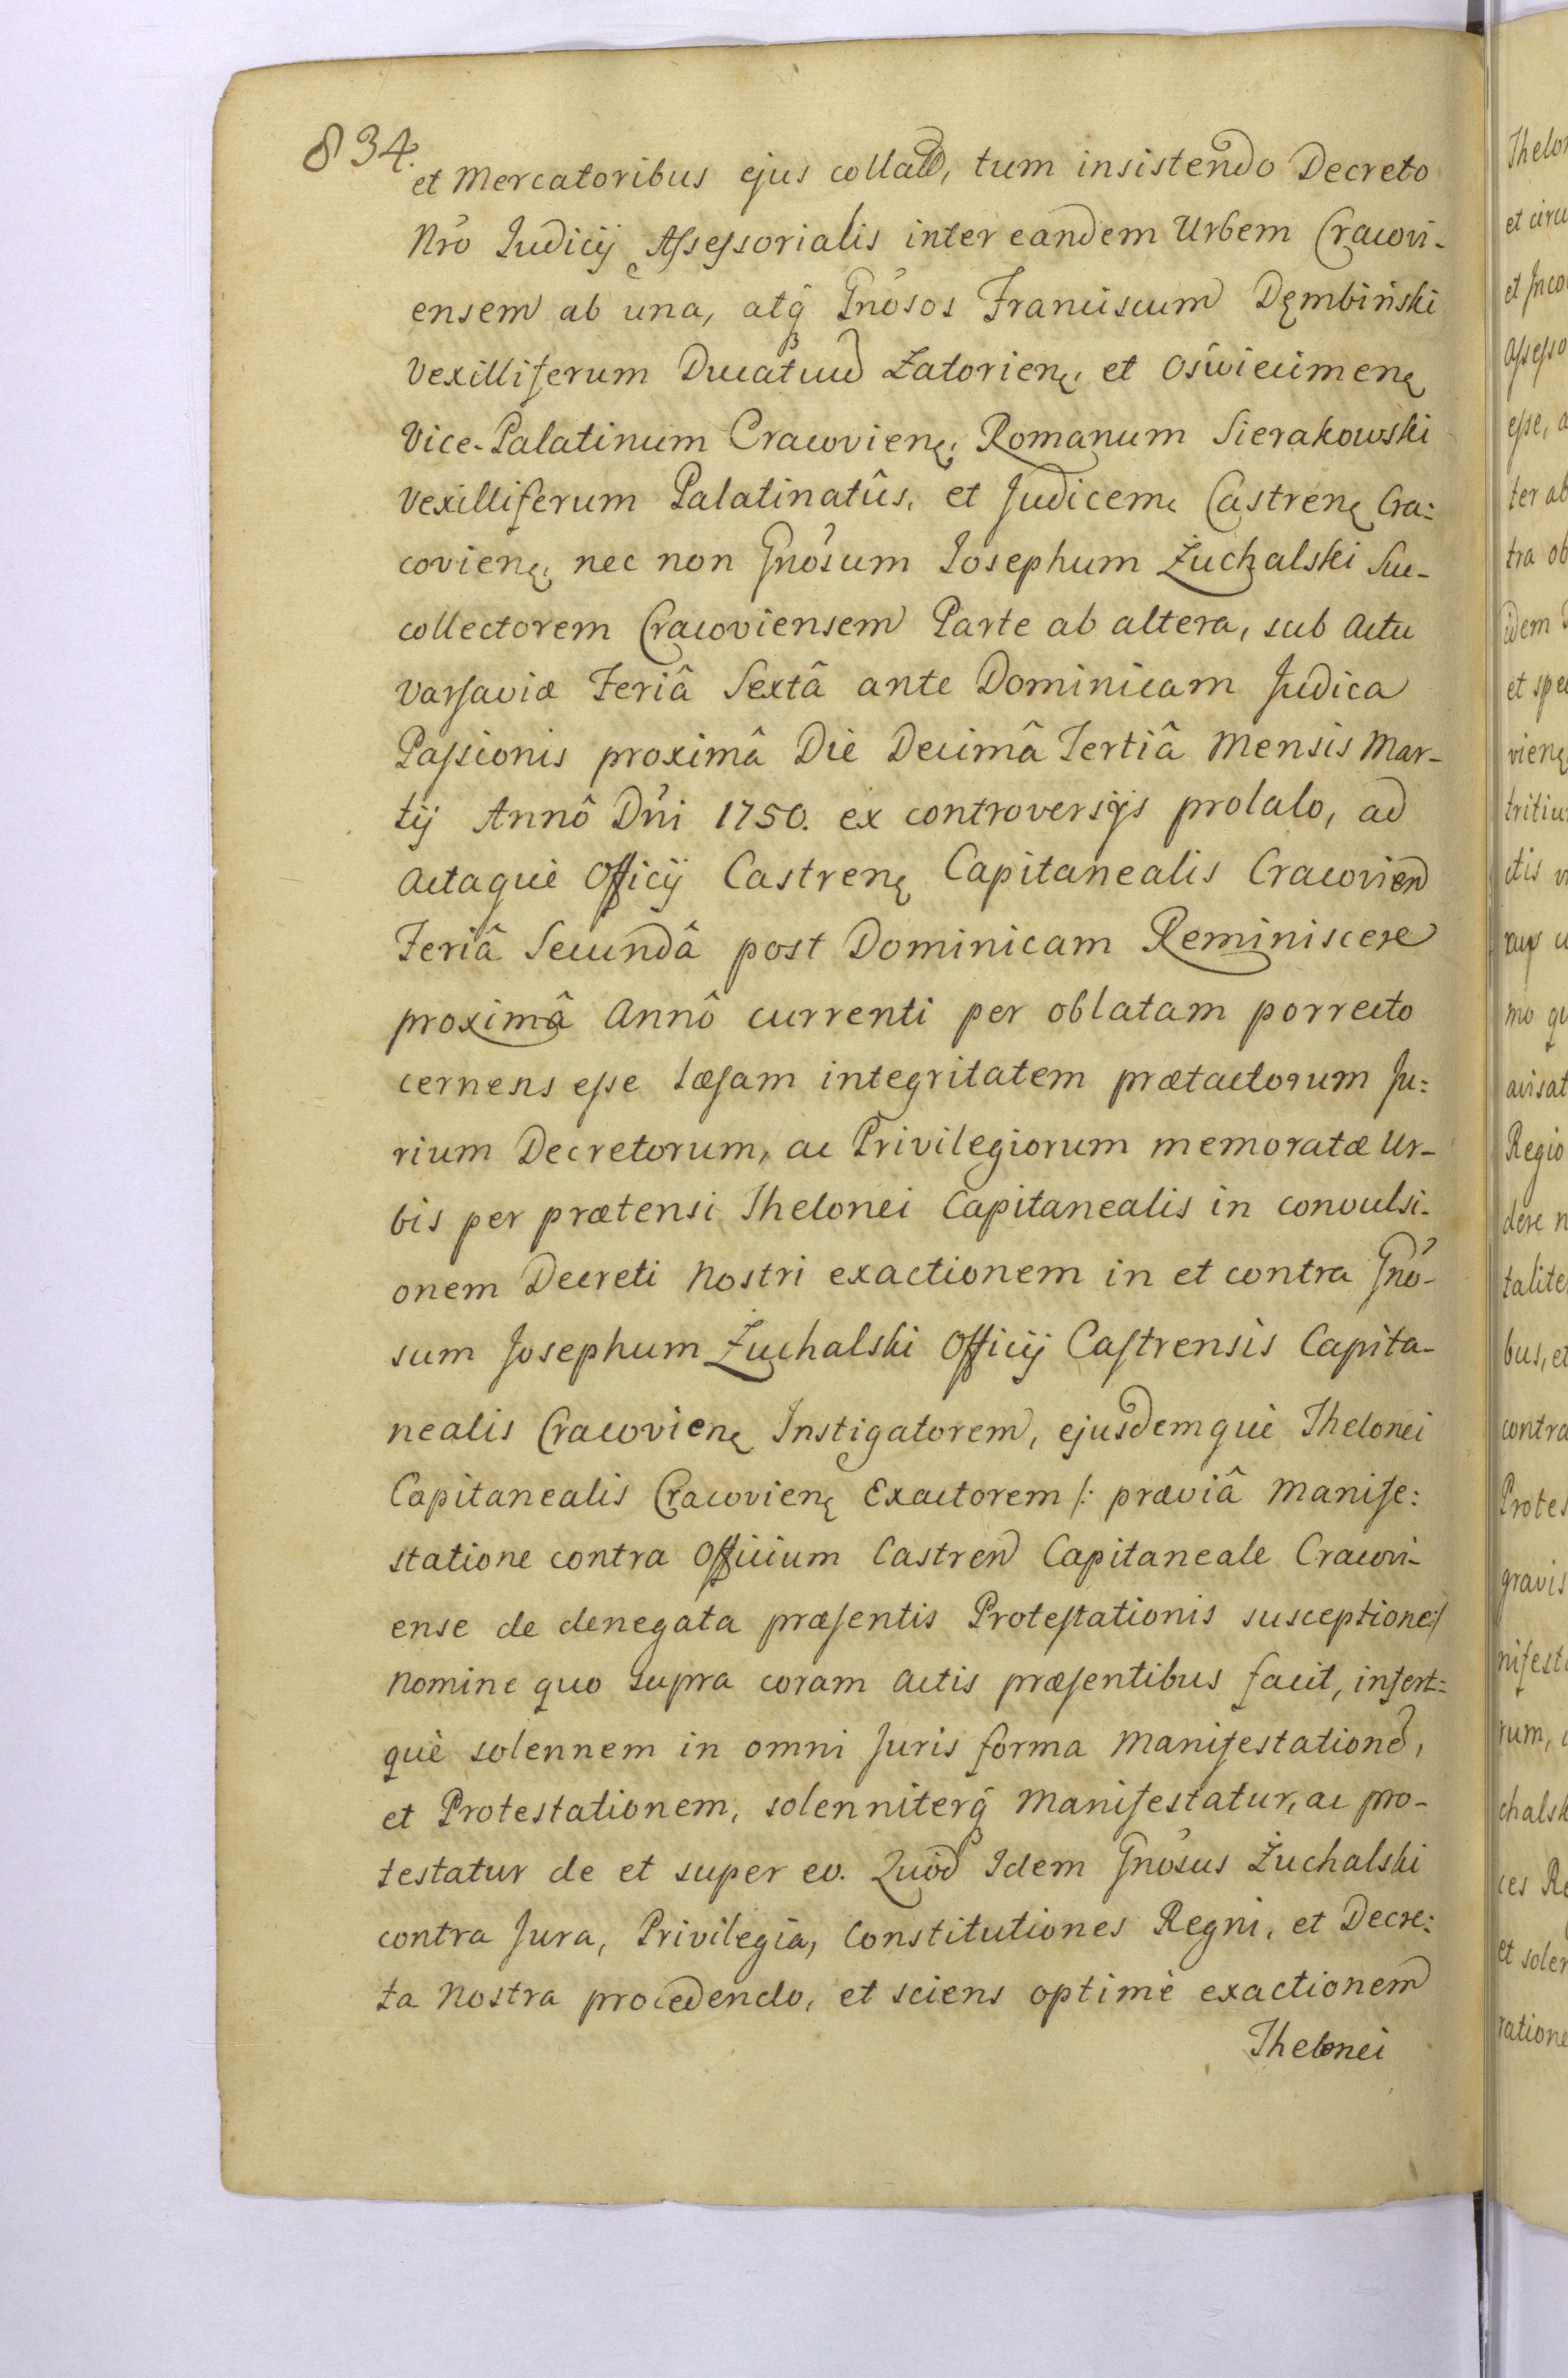 834.
et Mercatoribus ejus collatis, tum insistendo Decreto
Nr̃o Judicij Assessorialis inter eandem Urbem Cracovi-
ensem ab una, atq̃ Gnõsos Franciscum Dęmbiński
Vexilliferum Ducatuum Zatorienę, et Oswiecimenę
Vice-Palatinum Cracovienę, Romanum Sierakowski
Vexilliferum Palatinatûs, et Judicem Castrenę Cra:
covienę, nec non Gnõsum Josephum Żuchalski Suc-
collectorem Cracoviensem Parte ab altera, sub Actu
Varsaviæ Feriâ Sextâ ante Dominicam Judica
Passionis proximâ Die Decimâ Tertiâ Mensis Mar-
tij Annô Dñi 1750. ex controversijs prolato, ad
Actaquè Officij Castrenę Capitanealis Cracovien
Feriâ Secundâ post Dominicam Reminiscere
proximâ Annô currenti per oblatam porrecto
cernens esse læsam integritatem prætactorum Ju:
rium Decretorum, ac Privilegiorum memoratæ Ur-
bis per prætensi Thelonei Capitanealis in convulsi-
onem Decreti Nostri exactionem in et contra Gnõ-
sum Josephum Żuchalski Officij Castrensis Capita-
nealis Cracovienę Instigatorem, ejusdemquè Thelonei
Capitanealis Cracovienę Exactorem /: præviâ Manife:
statione contra Officium Castren Capitaneale Cracovi-
ense de denegata præsentis Protestationis susceptione :/
Nomine quo supra coram Actis præsentibus facit, infert=
què solennem in omni Juris forma Manifestationem,
et Protestationem, solenniterq̃ Manifestatur, ac pro-
testatur de et super eo. Quôd Idem Gnõsus Żuchalski
contra Jura, Privilegia, Constitutiones Regni, et Decre:
ta Nostra procedendo, et sciens optimè exactionem
Thelonei